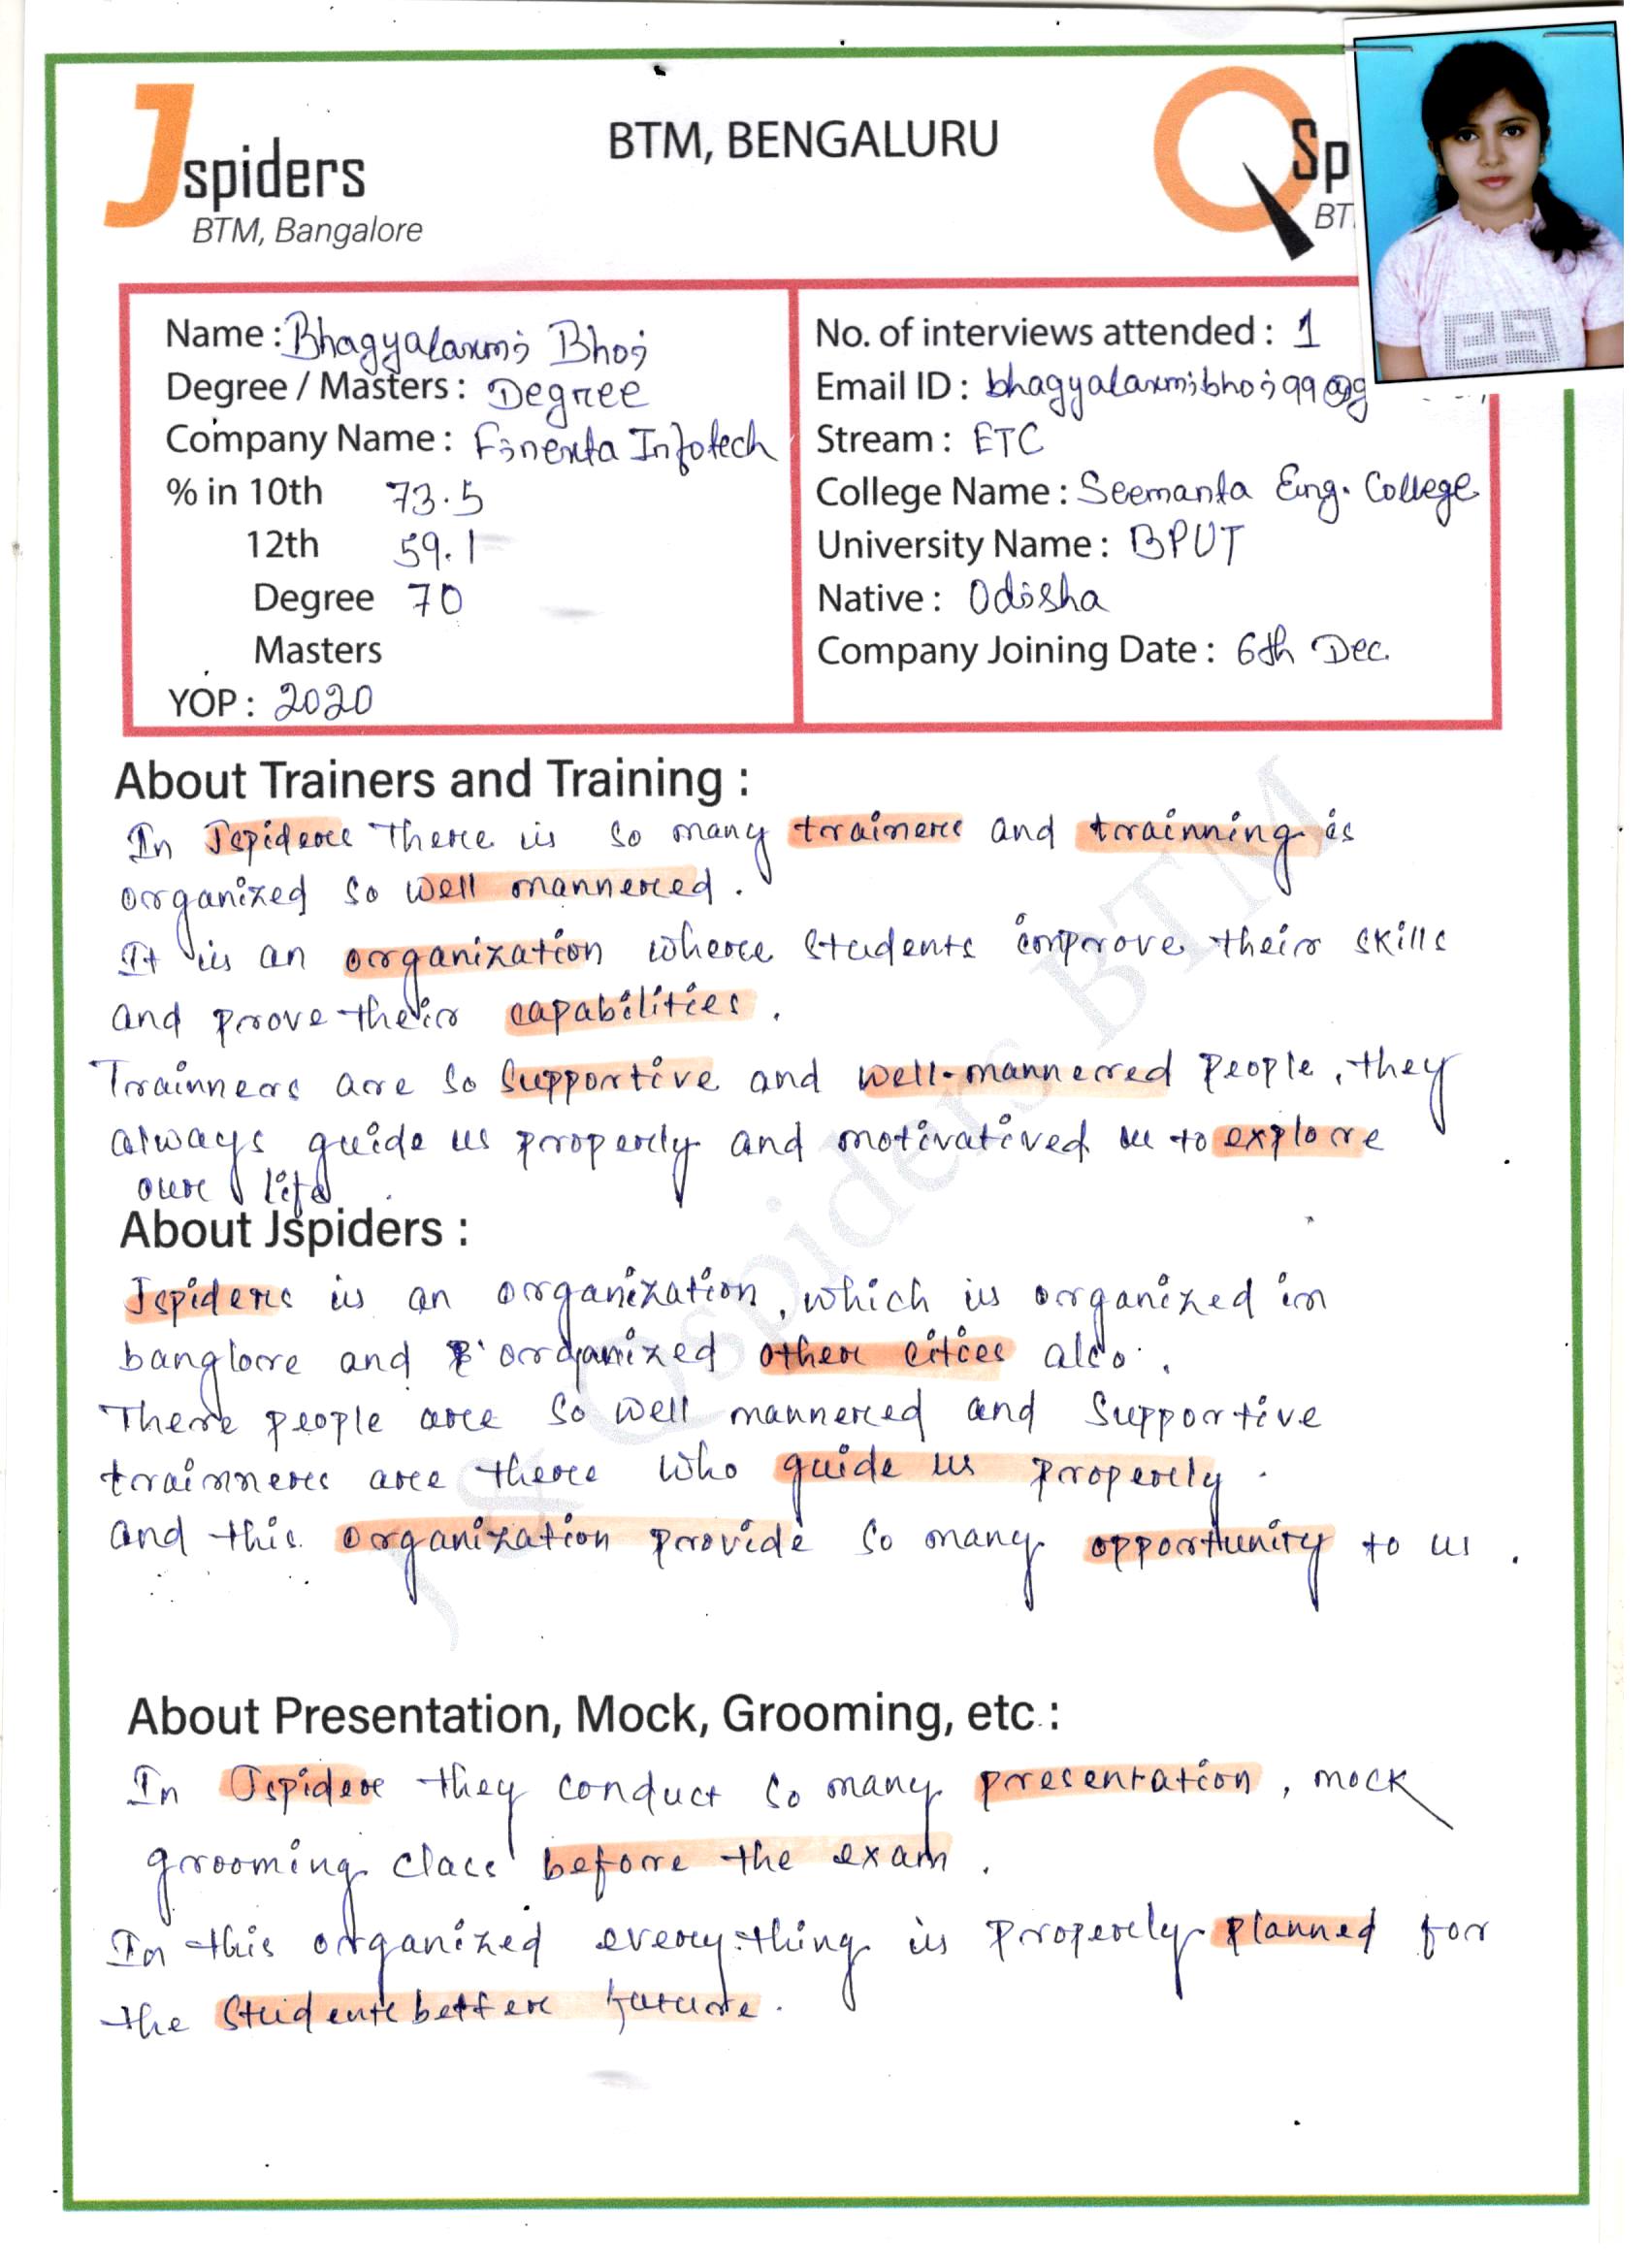 Jspiders
BTM, Bangalore
BTM, BENGALURU
QSp
BT
Name : Bhagyalaxmi Bhoi
Degree / Masters : Degree
Company Name : Finenta Infotech
% in 10th 73.5
12th 59.1
Degree 70
Masters
YOP : 2020
No. of interviews attended : 1
Email ID : bhagyalaxmibhoi99@g
Stream : ETC
College Name : Seemanta Eng. College
University Name : BPUT
Native : Odisha
Company Joining Date : 6th Dec.
About Trainers and Training :
In Jspiders there is so many trainers and trainning is
organized so well mannered.
It is an organization where students improve their skills
and prove their capabilities.
Trainners are so supportive and well-mannered people, they
always guide us properly and motivatived us to explore
our life
About Jspiders :
Jspiders is an organization, which is organized in
banglore and organized other cities also.
There people are so well mannered and supportive
trainners are there who guide us properly.
and this organization provide so many opportunity to us.
About Presentation, Mock, Grooming, etc. :
In Jspider they conduct so many presentation, mock
grooming class before the exam.
In this organized everything is properly planned for
the students better future.
J & Qspiders BTM